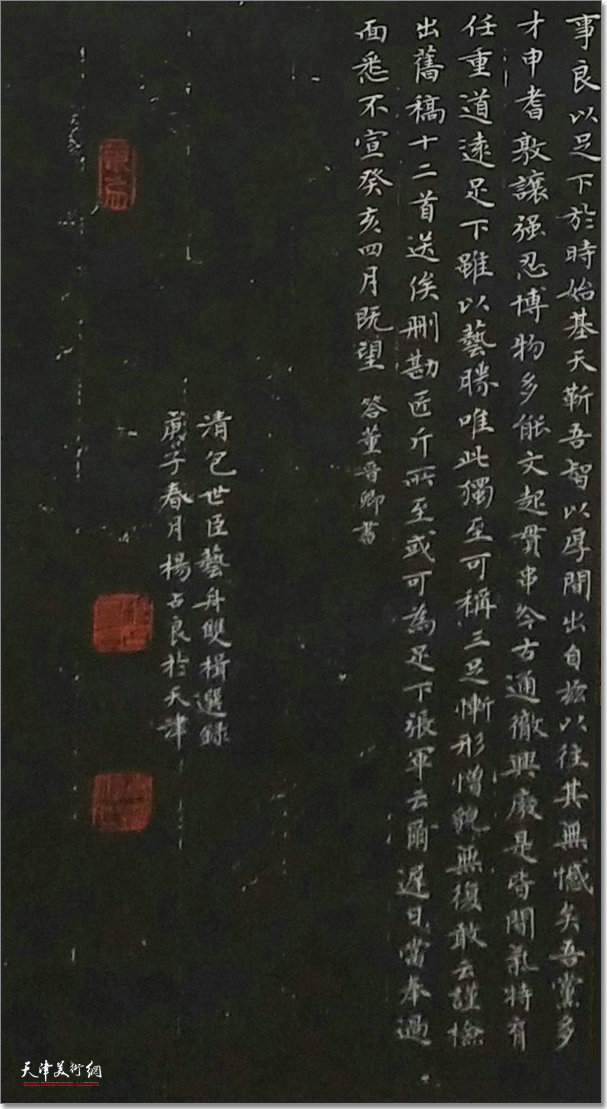 事良以足下於時始基天靳吾智以厚閒出自極以往其無憾矣吾黨多
才申耆敦讓强忍博物多能文起貫串今古通徹興廢是皆閒氣特有
任重道遠足下雖以藝勝唯此獨至可稱三足慚形憎貌無復敢云謹檢
出舊稿十二首送俟删勘匠斤所至或可為足下張軍云爾遲日當奉過
面悉不宣癸亥四月既望 答董晉卿書
清包世臣藝舟雙楫選録
庚子春月楊占良於天津
天津美術網